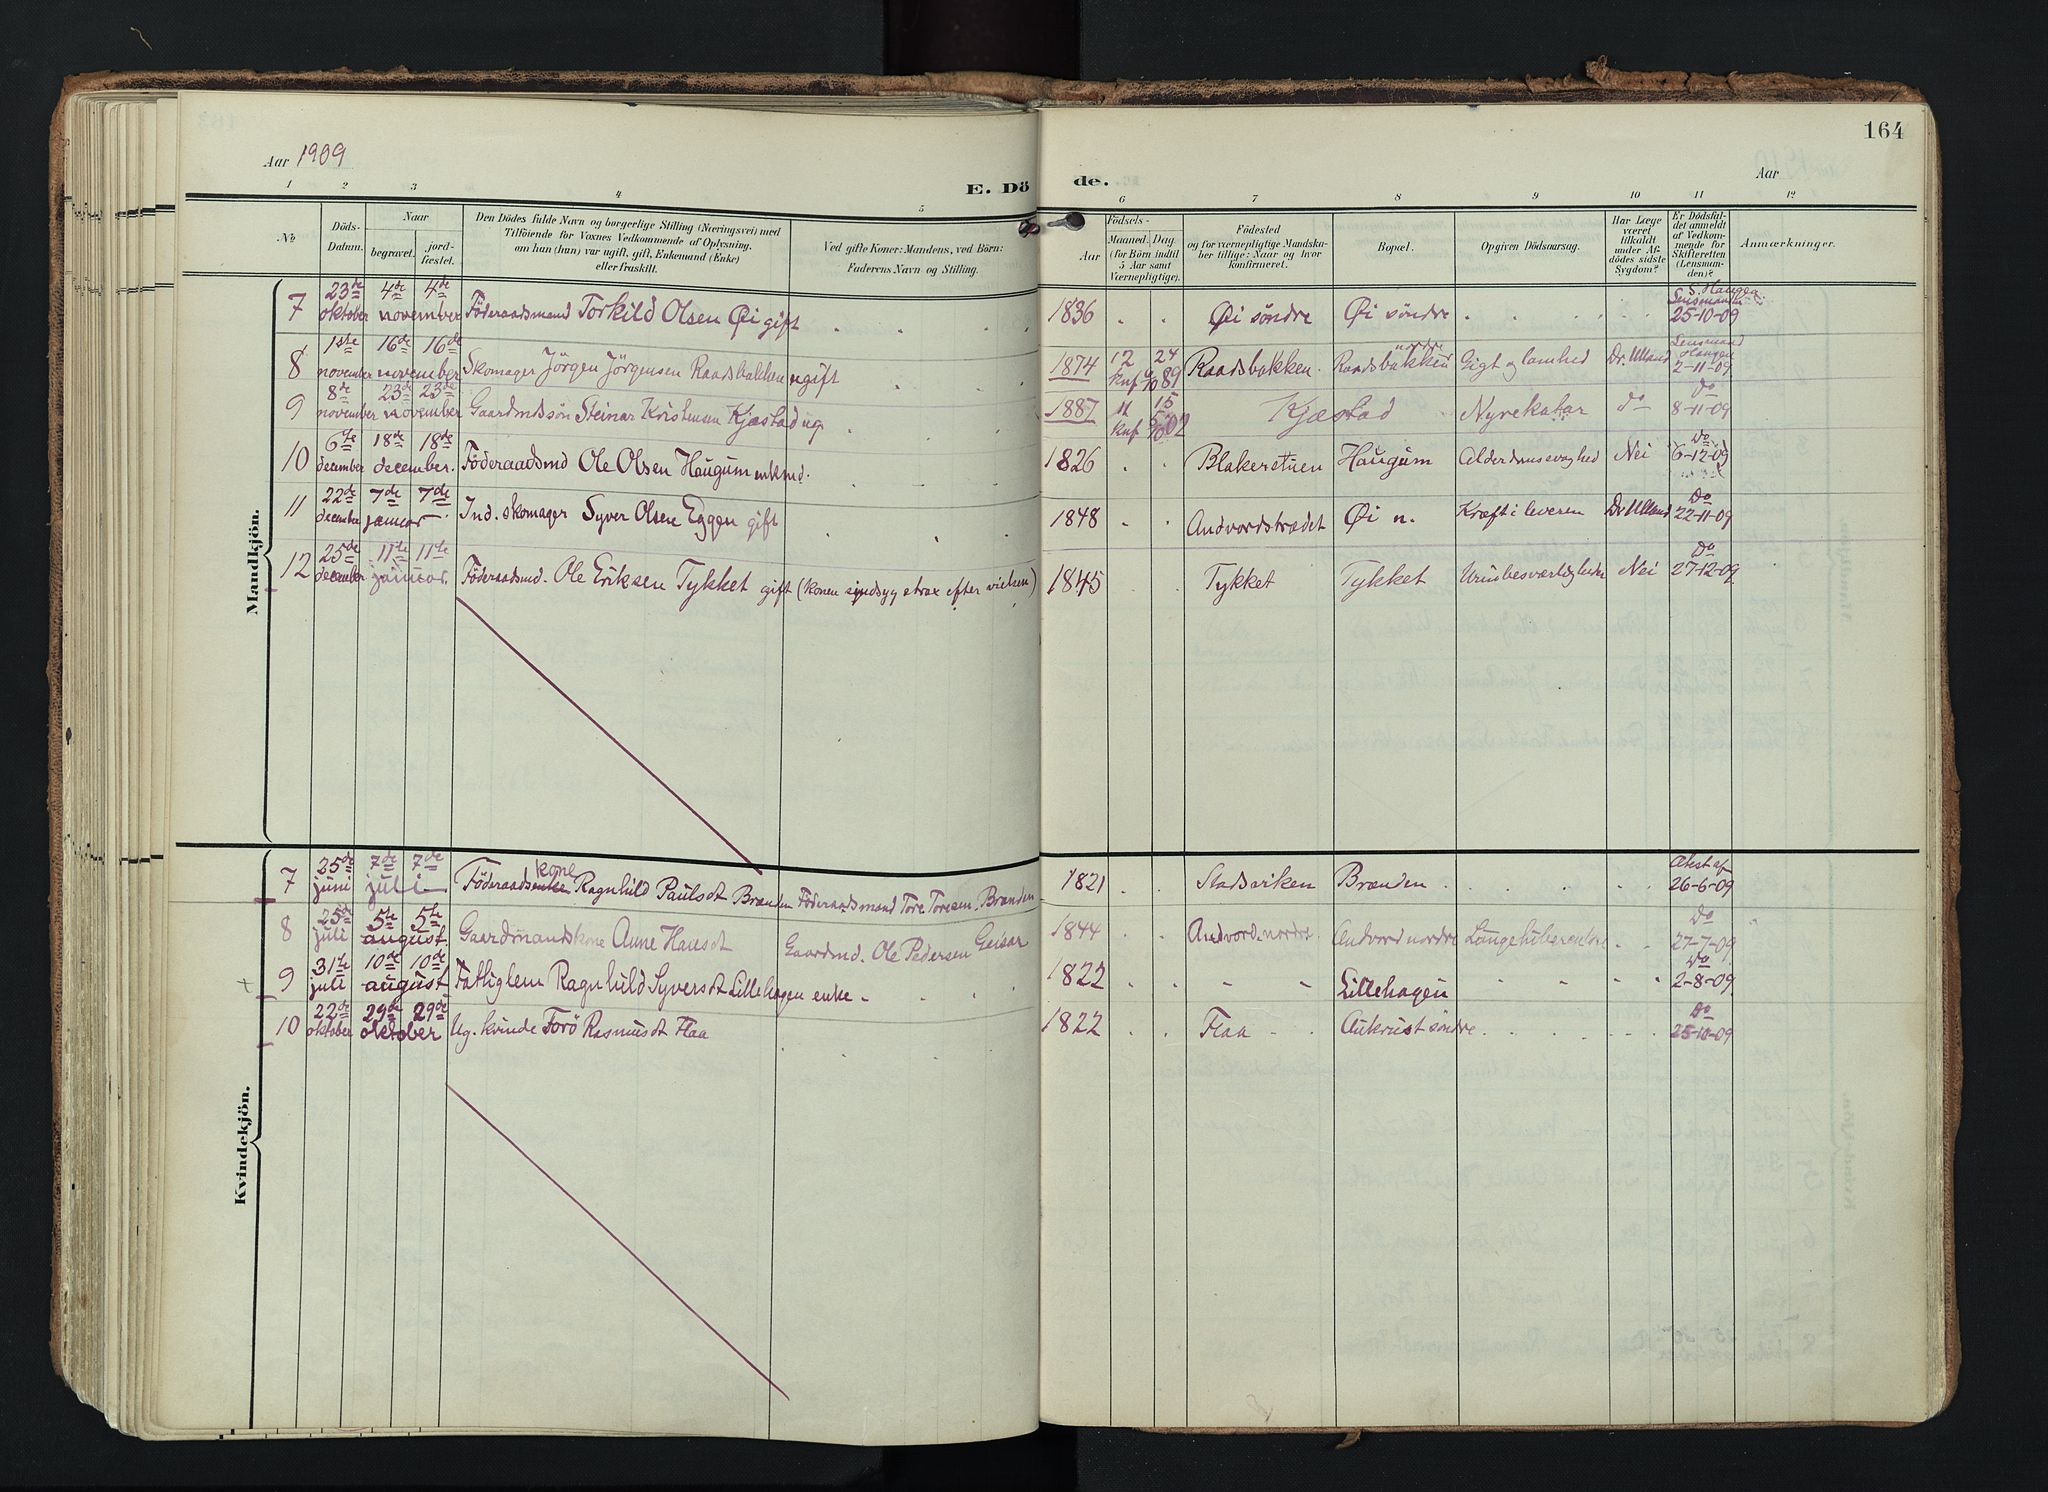 164
Aar 1909
Aar
E. Döde.
1 2 3 4 5 6 7 8 9 10 11 12
No
Döds-Datum.
Naar
begravet.
jord-fæstet.
Den Dödes fulde Navn og borgerlige Stilling (Næringsvei) med
Tilföiende for Voxnes Vedkommende af Oplysning,
om han (hun) var ugift, gift, Enkemand (Enke)
eller fraskilt.
Ved gifte Koner: Mandens, ved Börn:
Faderens Navn og Stilling.
Födsels-
Aar
Maaned. Dag.
(for Börn indtil
5 Aar samt
Værnepligtige).
Födested
og for værnepligtige Mandska-
ber tillige: Naar og hvor
konfirmeret.
Bopæl.
Opgiven Dödsaarsag.
Har Læge
været
tilkaldt
under Af-
dödes sidste
Sygdom?
Er Dödsfal-
det anmeldt
af Vedkom-
mende for
Skifteretten
(Lensman-
den)?
Anmærkninger.
Mandkjön.
7 23de oktober 4de november 4de Föderaadsmand Torkild Olsen Øi gift 1836 Øi söndre Øi söndre S. Haugen Lensmand 25-10-09
8 1ste november 16de november 16de Skomager Jörgen Jörgensen Raadsbakken ugift 1874 12 24 knf 6/10 89 Raadsbakken Raadsbakken nordre Gigt og lamhed Dr. Ulland Lensmand Haugen 2-11-09
9 8de november 23de november 23de Gaardmdssön Steinar Kristensen Kjæstad ug. 1887 11 15 knf 5/10 02 Kjæstad Nyrekatar do Do 8-11-09
10 6te december 18de december. 18de Föderaadsmd Ole Olsen Haugum enkmd. 1826 Blakerstuen Haugum Alderdomssvaghed Nei Do 6-12-09
11 22de december 7de januar 7de Ind. skomager Syver Olsen Eggen gift 1848 Andvordstrædet Øi n. Kræft i leveren Dr Ulland Do 22-11-09
12 25de december 11te januar 11te Föderaadsmd. Ole Eriksen Tykket gift (konen sindsyg strax efter vielsen) 1845 Tykket Tykket Urinbesværligheder Nei Do 27-12-09
Kvindekjön.
7 25de juni 7de juli 7de Föderaadsenke kone Ragnhild Paulsdt Brænden Föderaadsmand Tore Toresen Brænden 1821 Stadsviken Brænden Atest af 26-6-09
8 25de juli 5te august 5te Gaardmandskone Anne Hansdt Gaardmd. Ole Pedersen Geisar 1844 Andvord nordre Andvord nordre Do 27-7-09
9 31te juli 10de august 10de Fattiglem Ragnhild Syversdt Lillehagen enke 1822 Lillehagen Do 2-8-09
10 22de oktober 29de oktober 29de Ug. kvinde Torö Rasmusdt Flaa 1822 Flaa Aukrust söndre Do 25-10-09